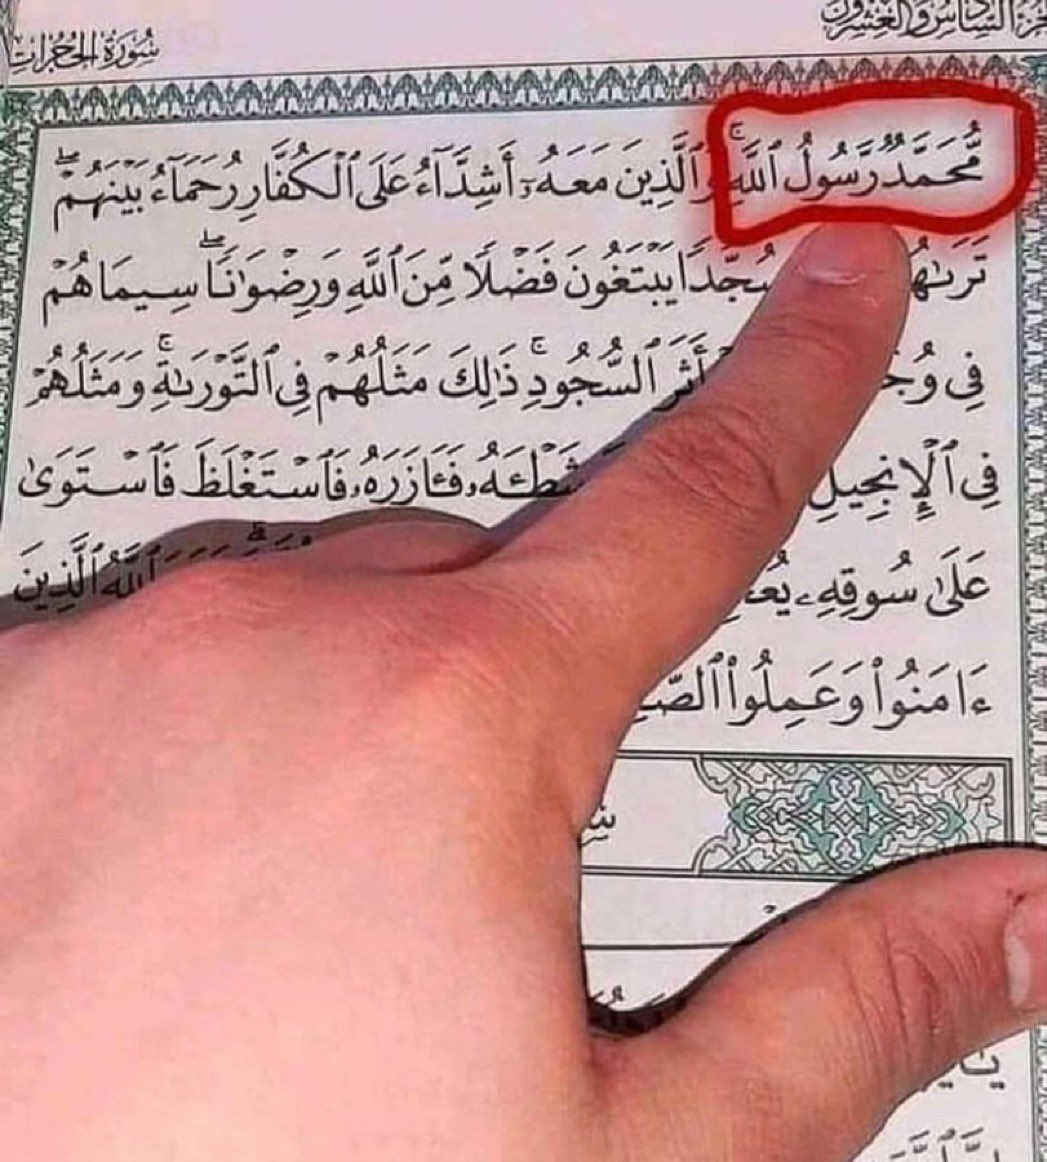 سُورَةُ الحُجُرَاتِ
السَّادِسُ وَالعِشْرُونَ
مُّحَمَّدٌ رَّسُولُ ٱللَّهِۚ وَٱلَّذِينَ مَعَهُۥٓ أَشِدَّآءُ عَلَى ٱلْكُفَّارِ رُحَمَآءُ بَيْنَهُمْۖ
سُجَّدًا يَبْتَغُونَ فَضْلًا مِّنَ ٱللَّهِ وَرِضْوَٰنًاۖ سِيمَاهُمْ
فِى أَثَرِ ٱلسُّجُودِۚ ذَٰلِكَ مَثَلُهُمْ فِى ٱلتَّوْرَىٰةِۚ وَمَثَلُهُمْ
فِى ٱلْإِنجِيلِ شَطْـَٔهُۥ فَـَٔازَرَهُۥ فَٱسْتَغْلَظَ فَٱسْتَوَىٰ
عَلَىٰ سُوقِهِۦ ٱللَّهُ ٱلَّذِينَ
ءَامَنُوا۟ وَعَمِلُوا۟